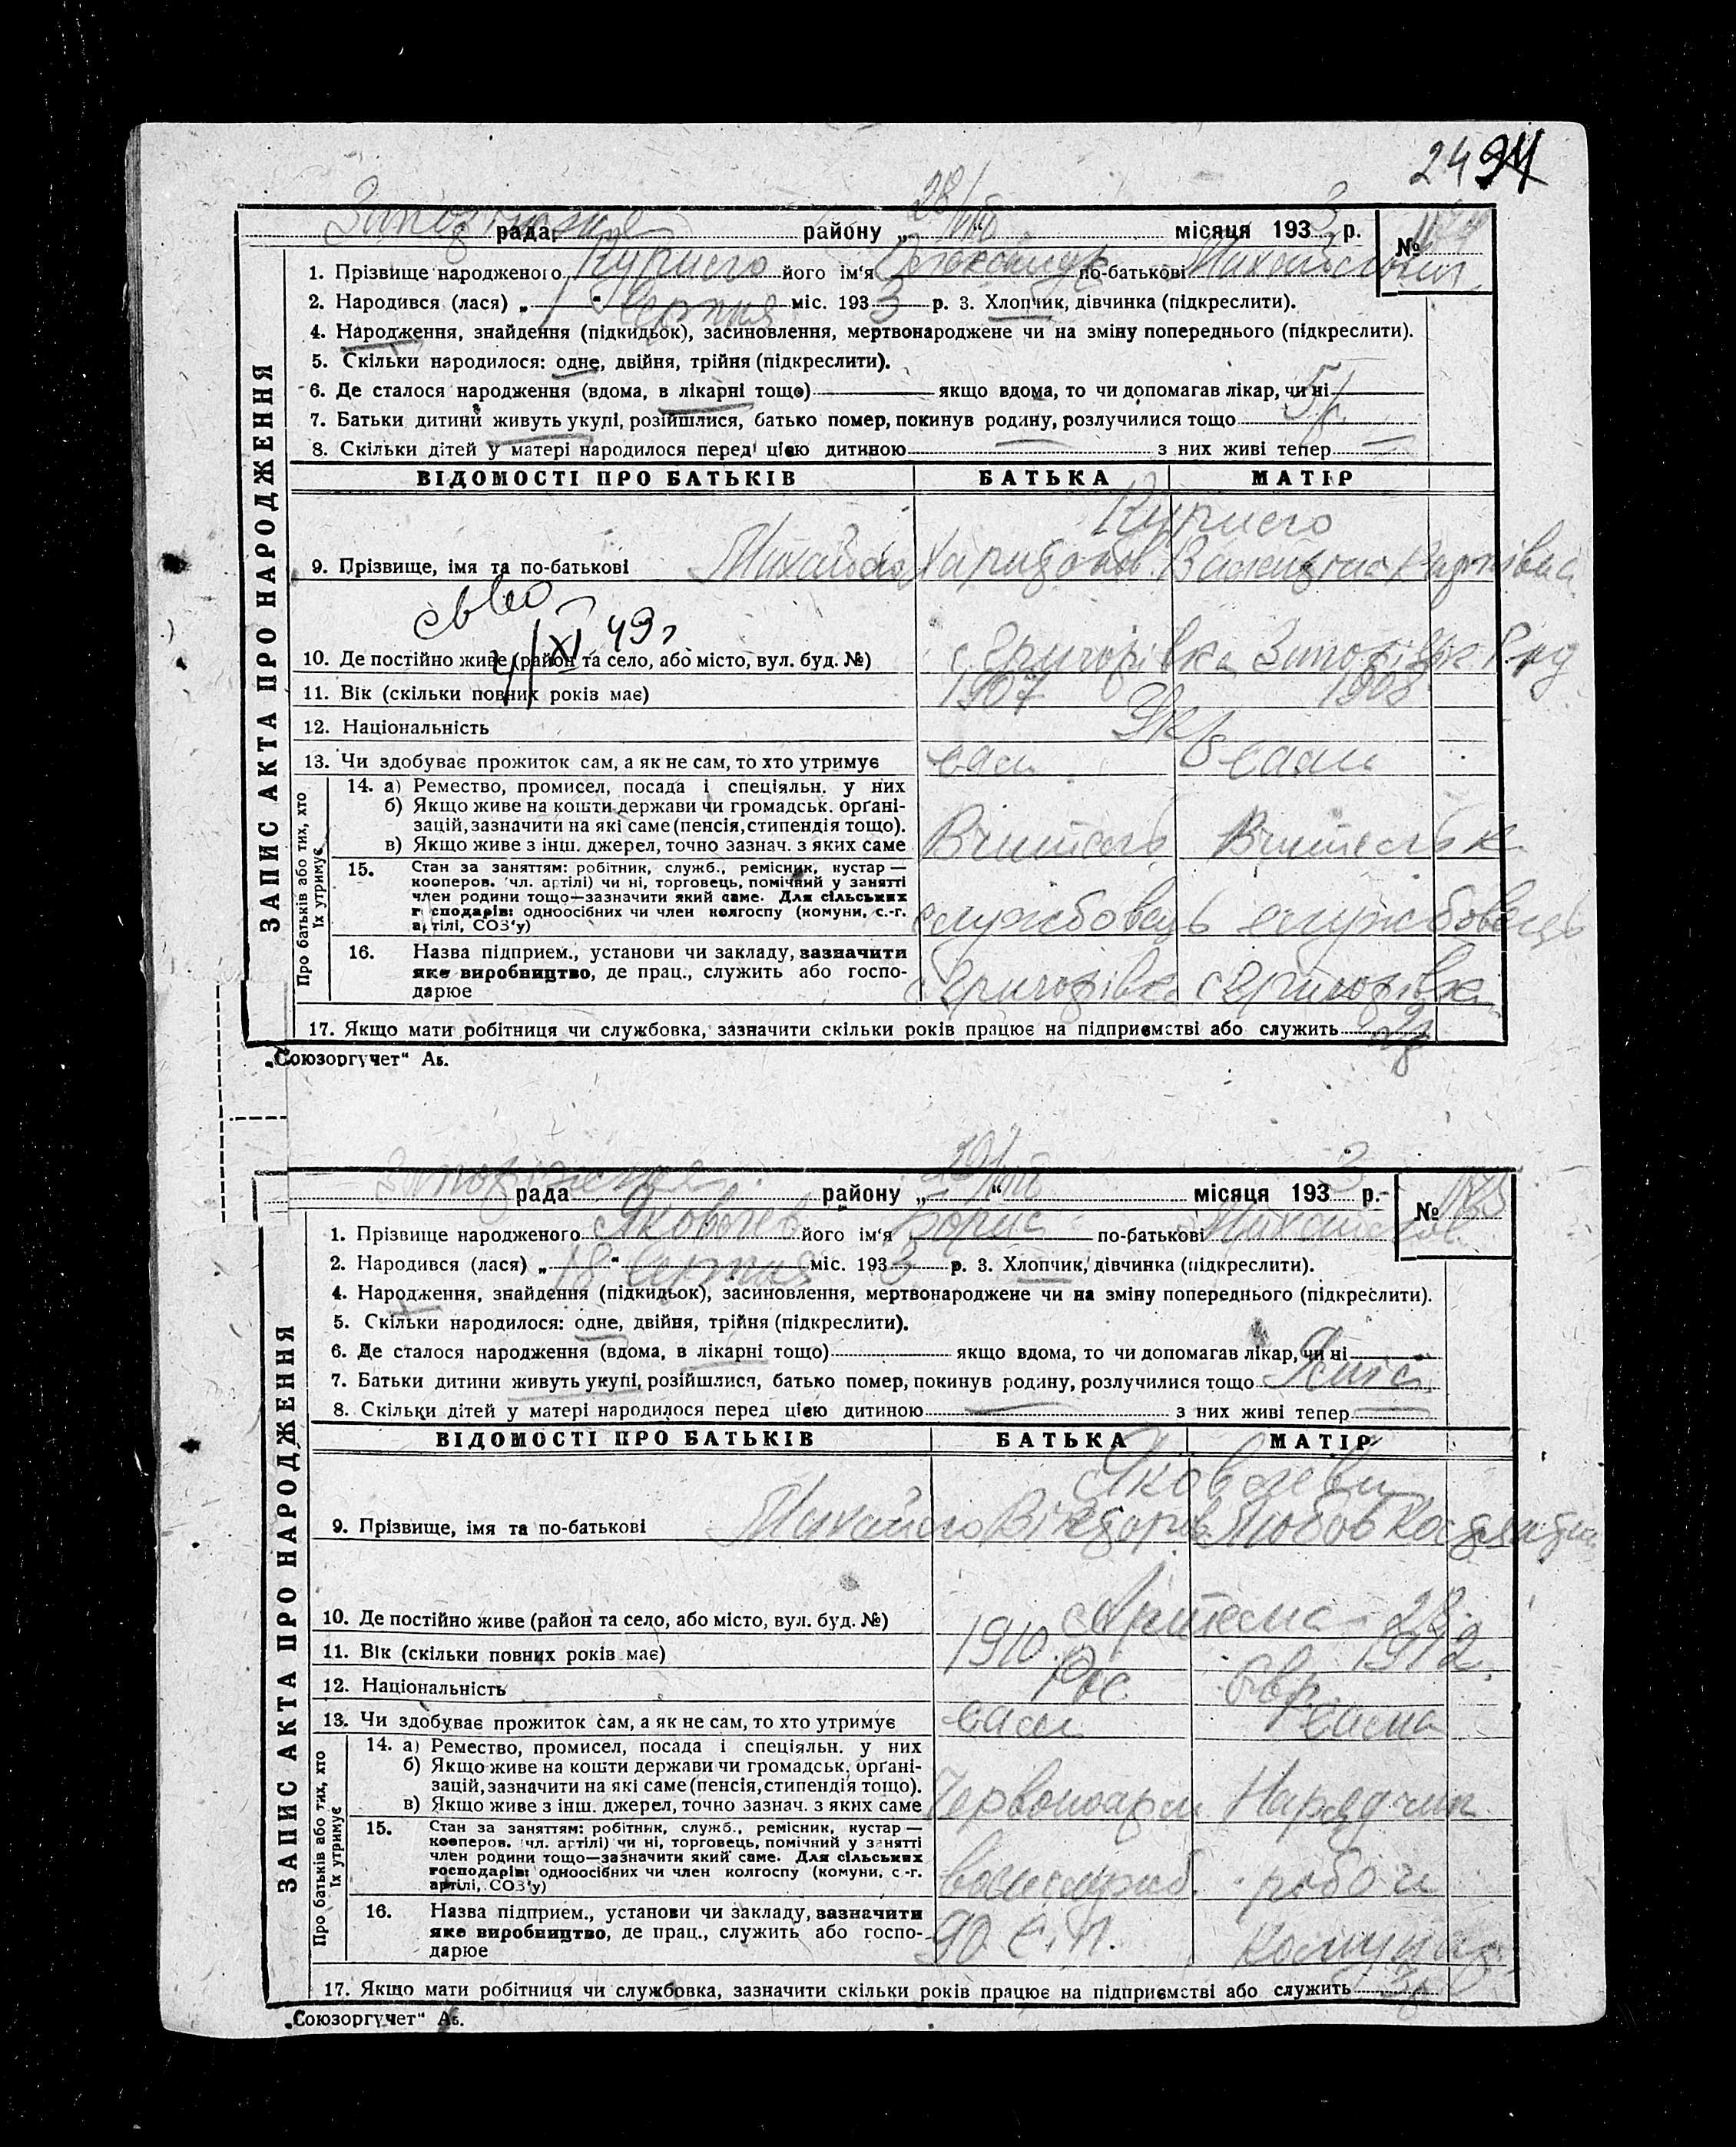 2494
28/VIII
рада району „ “ місяця 1933 р. №
1. Прізвище народженого його ім'я Олександр по-батькові
2. Народився (лася) „ 1 “ Серпня міс. 1933 р. 3. Хлопчик, дівчинка (підкреслити).
4. Народження, знайдення (підкидьок), засиновлення, мертвонароджене чи на зміну попереднього (підкреслити).
5. Скільки народилося: одне, двійня, трійня (підкреслити).
6. Де сталося народження (вдома, в лікарні тощо) якщо вдома, то чи допомагав лікар, чи ні
7. Батьки дитини живуть укупі, розійшлися, батько помер, покинув родину, розлучилися тощо 5р.
8. Скільки дітей у матері народилося перед цією дитиною — з них живі тепер —
ЗАПИС АКТА ПРО НАРОДЖЕННЯ
ВІДОМОСТІ ПРО БАТЬКІВ БАТЬКА МАТІР
9. Прізвище, імя та по-батькові Михайло
4/XI 49г
10. Де постійно живе (район та село, або місто, вул. буд. №) с Григорівка
11. Вік (скільки повних років має) 1907 1908
12. Національність Укр
13. Чи здобуває прожиток сам, а як не сам, то хто утримує сам сама
Про батьків або тих, хто їх утримує
14. а) Ремество, промисел, посада і спеціяльн. у них
б) Якщо живе на кошти держави чи громадськ. орґані-
зацій, зазначити на які саме (пенсія, стипендія тощо).
в) Якщо живе з інш. джерел, точно зазнач. з яких саме Вчитель Вчителька
15. Стан за заняттям: робітник, служб., ремісник, кустар —
кооперов. (чл. артілі) чи ні, торговець, помічний у занятті
член родини тощо—зазначити який саме. Для сільських
господарів: одноосібних чи член колгоспу (комуни, с.-г.
артілі, СОЗ'у) службовець службовець
16. Назва підприєм., установи чи закладу, зазначити
яке виробництво, де прац., служить або госпо-
дарює с Григорівка с Григорівка
17. Якщо мати робітниця чи службовка, зазначити скільки років працює на підприємстві або служить 2р
„Союзоргучет“ Аб.
29/VIII
рада району „ “ місяця 1933 р. №
1. Прізвище народженого Яковлев його ім'я Борис по-батькові
2. Народився (лася) „ 18 “ Серпня міс. 1933 р. 3. Хлопчик, дівчинка (підкреслити).
4. Народження, знайдення (підкидьок), засиновлення, мертвонароджене чи на зміну попереднього (підкреслити).
5. Скільки народилося: одне, двійня, трійня (підкреслити).
6. Де сталося народження (вдома, в лікарні тощо) якщо вдома, то чи допомагав лікар, чи ні
7. Батьки дитини живуть укупі, розійшлися, батько помер, покинув родину, розлучилися тощо
8. Скільки дітей у матері народилося перед цією дитиною — з них живі тепер —
ЗАПИС АКТА ПРО НАРОДЖЕННЯ
ВІДОМОСТІ ПРО БАТЬКІВ БАТЬКА МАТІР
Яковлеви
9. Прізвище, імя та по-батькові Михайло Вікторів Любов
10. Де постійно живе (район та село, або місто, вул. буд. №)
11. Вік (скільки повних років має) 1910 1912
12. Національність Рос Євр
13. Чи здобуває прожиток сам, а як не сам, то хто утримує сам сама
Про батьків або тих, хто їх утримує
14. а) Ремество, промисел, посада і спеціяльн. у них
б) Якщо живе на кошти держави чи громадськ. орґані-
зацій, зазначити на які саме (пенсія, стипендія тощо).
в) Якщо живе з інш. джерел, точно зазнач. з яких саме Червоноарм Нарядчик
15. Стан за заняттям: робітник, служб., ремісник, кустар —
кооперов. (чл. артілі) чи ні, торговець, помічний у занятті
член родини тощо—зазначити який саме. Для сільських
господарів: одноосібних чи член колгоспу (комуни, с.-г.
артілі, СОЗ'у)
16. Назва підприєм., установи чи закладу, зазначити
яке виробництво, де прац., служить або госпо-
дарює 90 С.П. Комунар
17. Якщо мати робітниця чи службовка, зазначити скільки років працює на підприємстві або служить 3р
„Союзоргучет“ Аб.